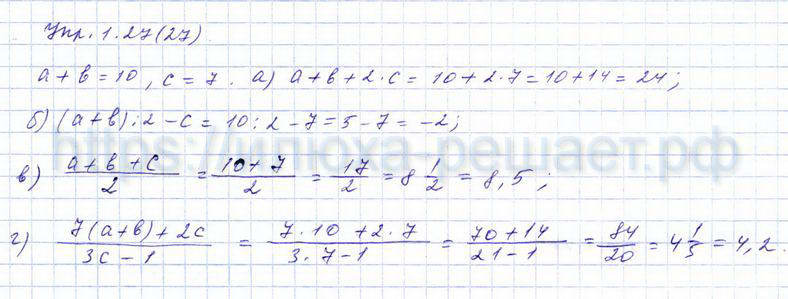 Упр. 1.27(27)
a + в = 10, c = 7. а) a + в + 2·c = 10 + 2·7 = 10 + 14 = 24;
б) (a + в) : 2 - c = 10 : 2 - 7 = 5 - 7 = -2;
https://илюха-решает.рф
в) (a + в + c)/2 = (10 + 7)/2 = 17/2 = 8 1/2 = 8,5;
г) (7(a + в) + 2c)/(3c - 1) = (7·10 + 2·7)/(3·7 - 1) = (70 + 14)/(21 - 1) = 84/20 = 4 1/5 = 4,2.